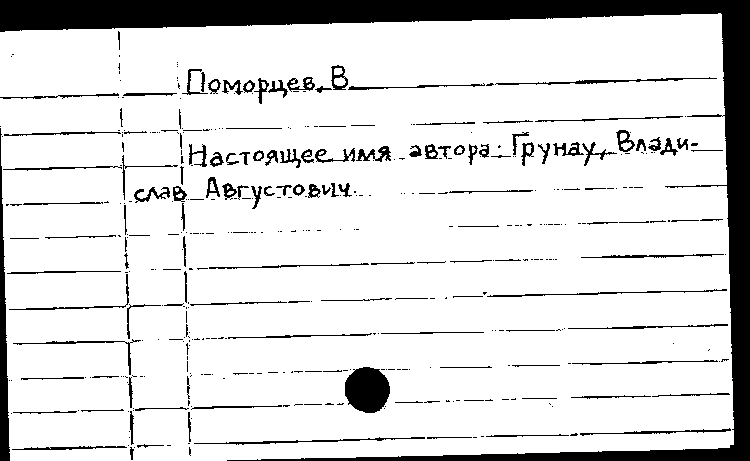 Поморцев, В.
Настоящее имя автора: Грунау, Влади-
слав Августович.